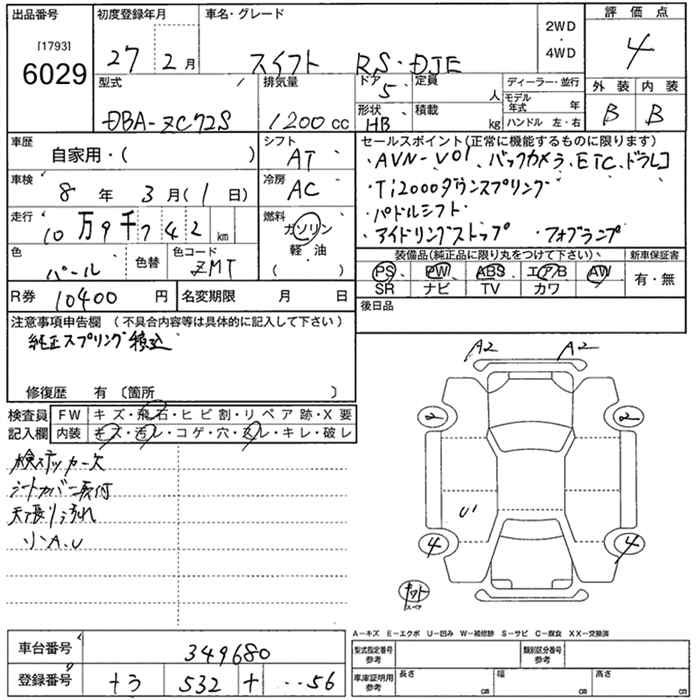 出品番号
[1793]
6029
初度登録年月
27 2月
車名・グレード
スイフト RS・DJE
2WD
・
4WD
評価点
4
型式
DBA-ZC72S
排気量
1200cc
ドア
5
形状
HB
定員
人
積載
kg
ディーラー・並行
モデル年式 年
ハンドル 左・右
外装 内装
B B
車歴
自家用・( )
シフト
AT
車検
8年 3月(1日)
冷房
AC
走行
10万9千742km
燃料
ガソリン
軽・油
( )
色
パール
色替
色コード
ZMT
R券 10400円
名変期限 月 日
セールスポイント(正常に機能するものに限ります)
・AVN-V01、バックカメラ、ETC、ドラレコ
・Ti2000ダウンスプリング
・パドルシフト
・アイドリングストップ ・フォグランプ
装備品(純正品に限り丸をつけて下さい)
PS PW ABS エアB AW
SR ナビ TV カワ
新車保証書
有・無
後日品
注意事項申告欄 (不具合内容等は具体的に記入して下さい)
純正スプリング積込
修復歴 有 〔箇所 〕
検査員記入欄
FW キズ・飛石・ヒビ割・リペア跡・X要
内装 キズ・汚レ・コゲ・穴・スレ・キレ・破レ
検ステッカー欠
シートカバー取付
天張り汚れ
リンA.U
A2 A2
2 2
U'
4 4
スペア
A-キズ E-エクボ U-凹み W-補修跡 S-サビ C-腐食 XX-交換済
車台番号 349680
登録番号 532 ‥56
型式指定番号参考
類別区分番号参考
車庫証明用参考
長さ cm
幅 cm
高さ cm